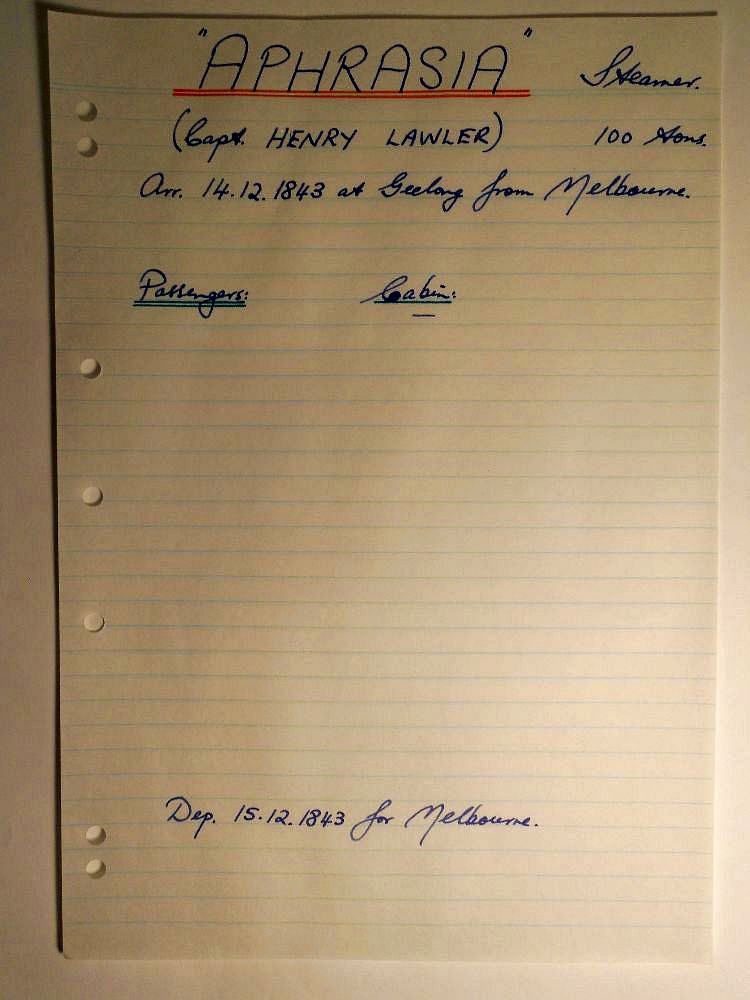 "APHRASIA" Steamer.
(Capt. HENRY LAWLER) 100 tons.
Arr. 14.12.1843 at Geelong from Melbourne.
Passengers: Cabin:
—
Dep. 15.12.1843 for Melbourne.